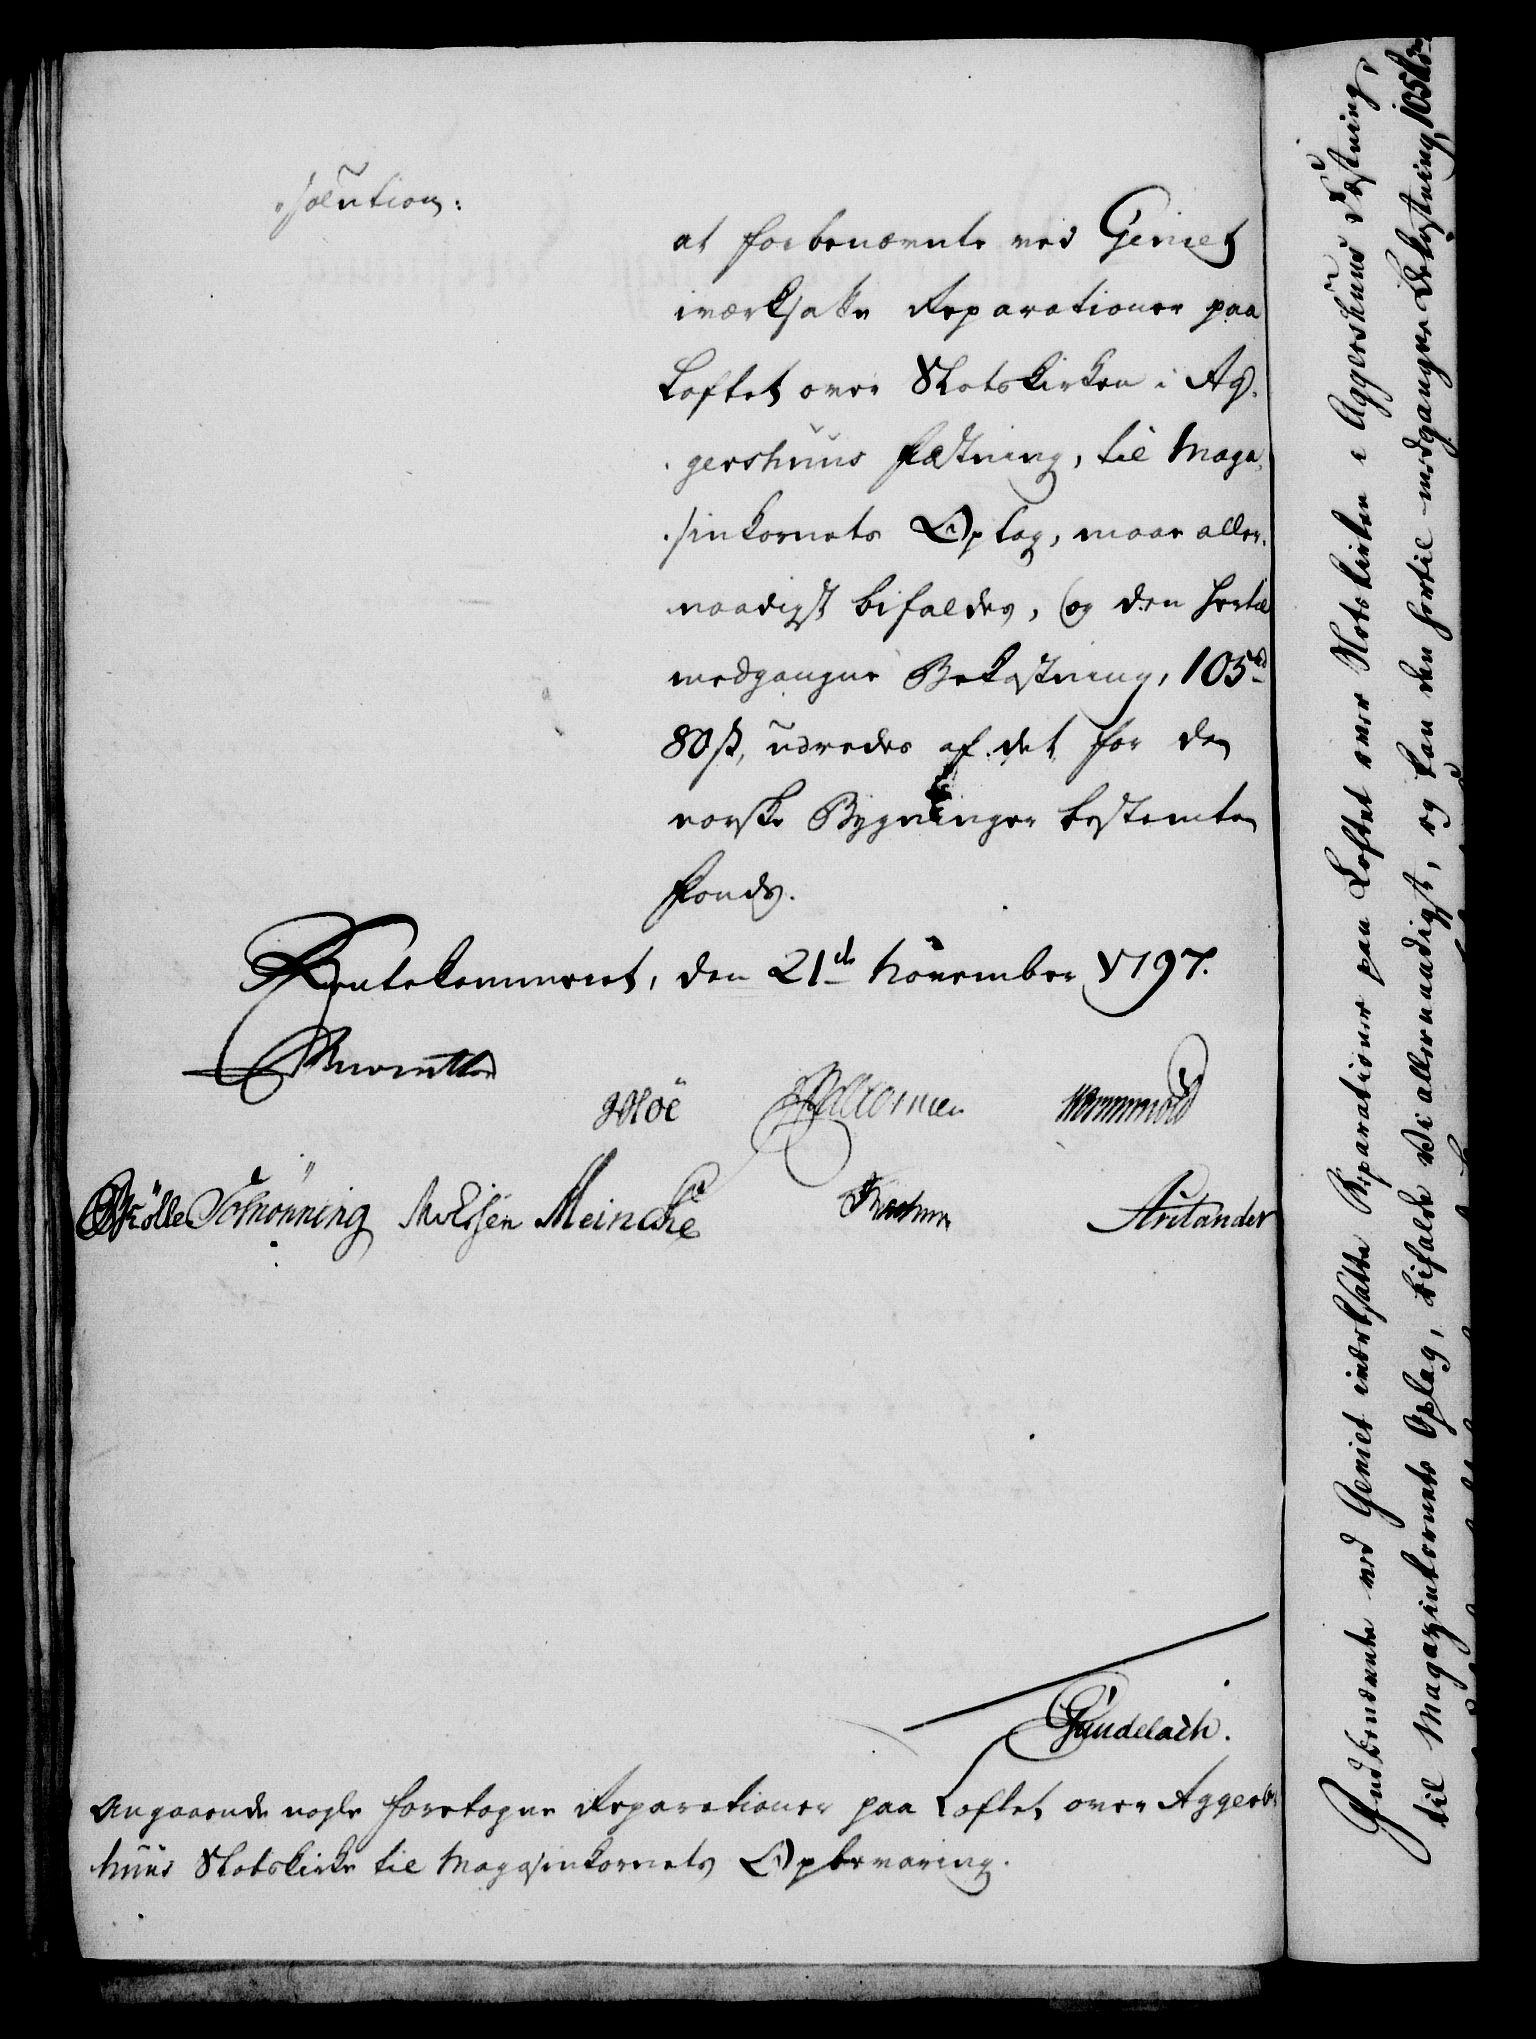 solution:
at forbenævnte ved Geniet
iværksatte Reparationer paa
Loftet over Slotskirken i Ag-
gershuus Fæstning, til Maga-
sinkornets Oplag, maae aller-
naadigst bifaldes, og den hertil
medgangne Bekostning, 105 rd
80 ß, udredes af det for de
norske Bygninger bestemte
Fonds.
Rentekammeret, den 21de November 1797.
Reventlow
Hoë Hammond
Møller Schønning Meincke Arctander
Gundelach.
Angaaende nogle foretagne Reparationer paa Loftet over Aggers-
huus Slotskirke til Magasinkornets Opbevaring.
Indbenævnte ved Geniet iværksatte Reparationer paa Loftet over Slotskirken i Aggershuus Fæstning,
til Magazinkornets Oplag, bifalde Vi allernaadigst, og kan den hertil medgangne Bekostning, 105 rd